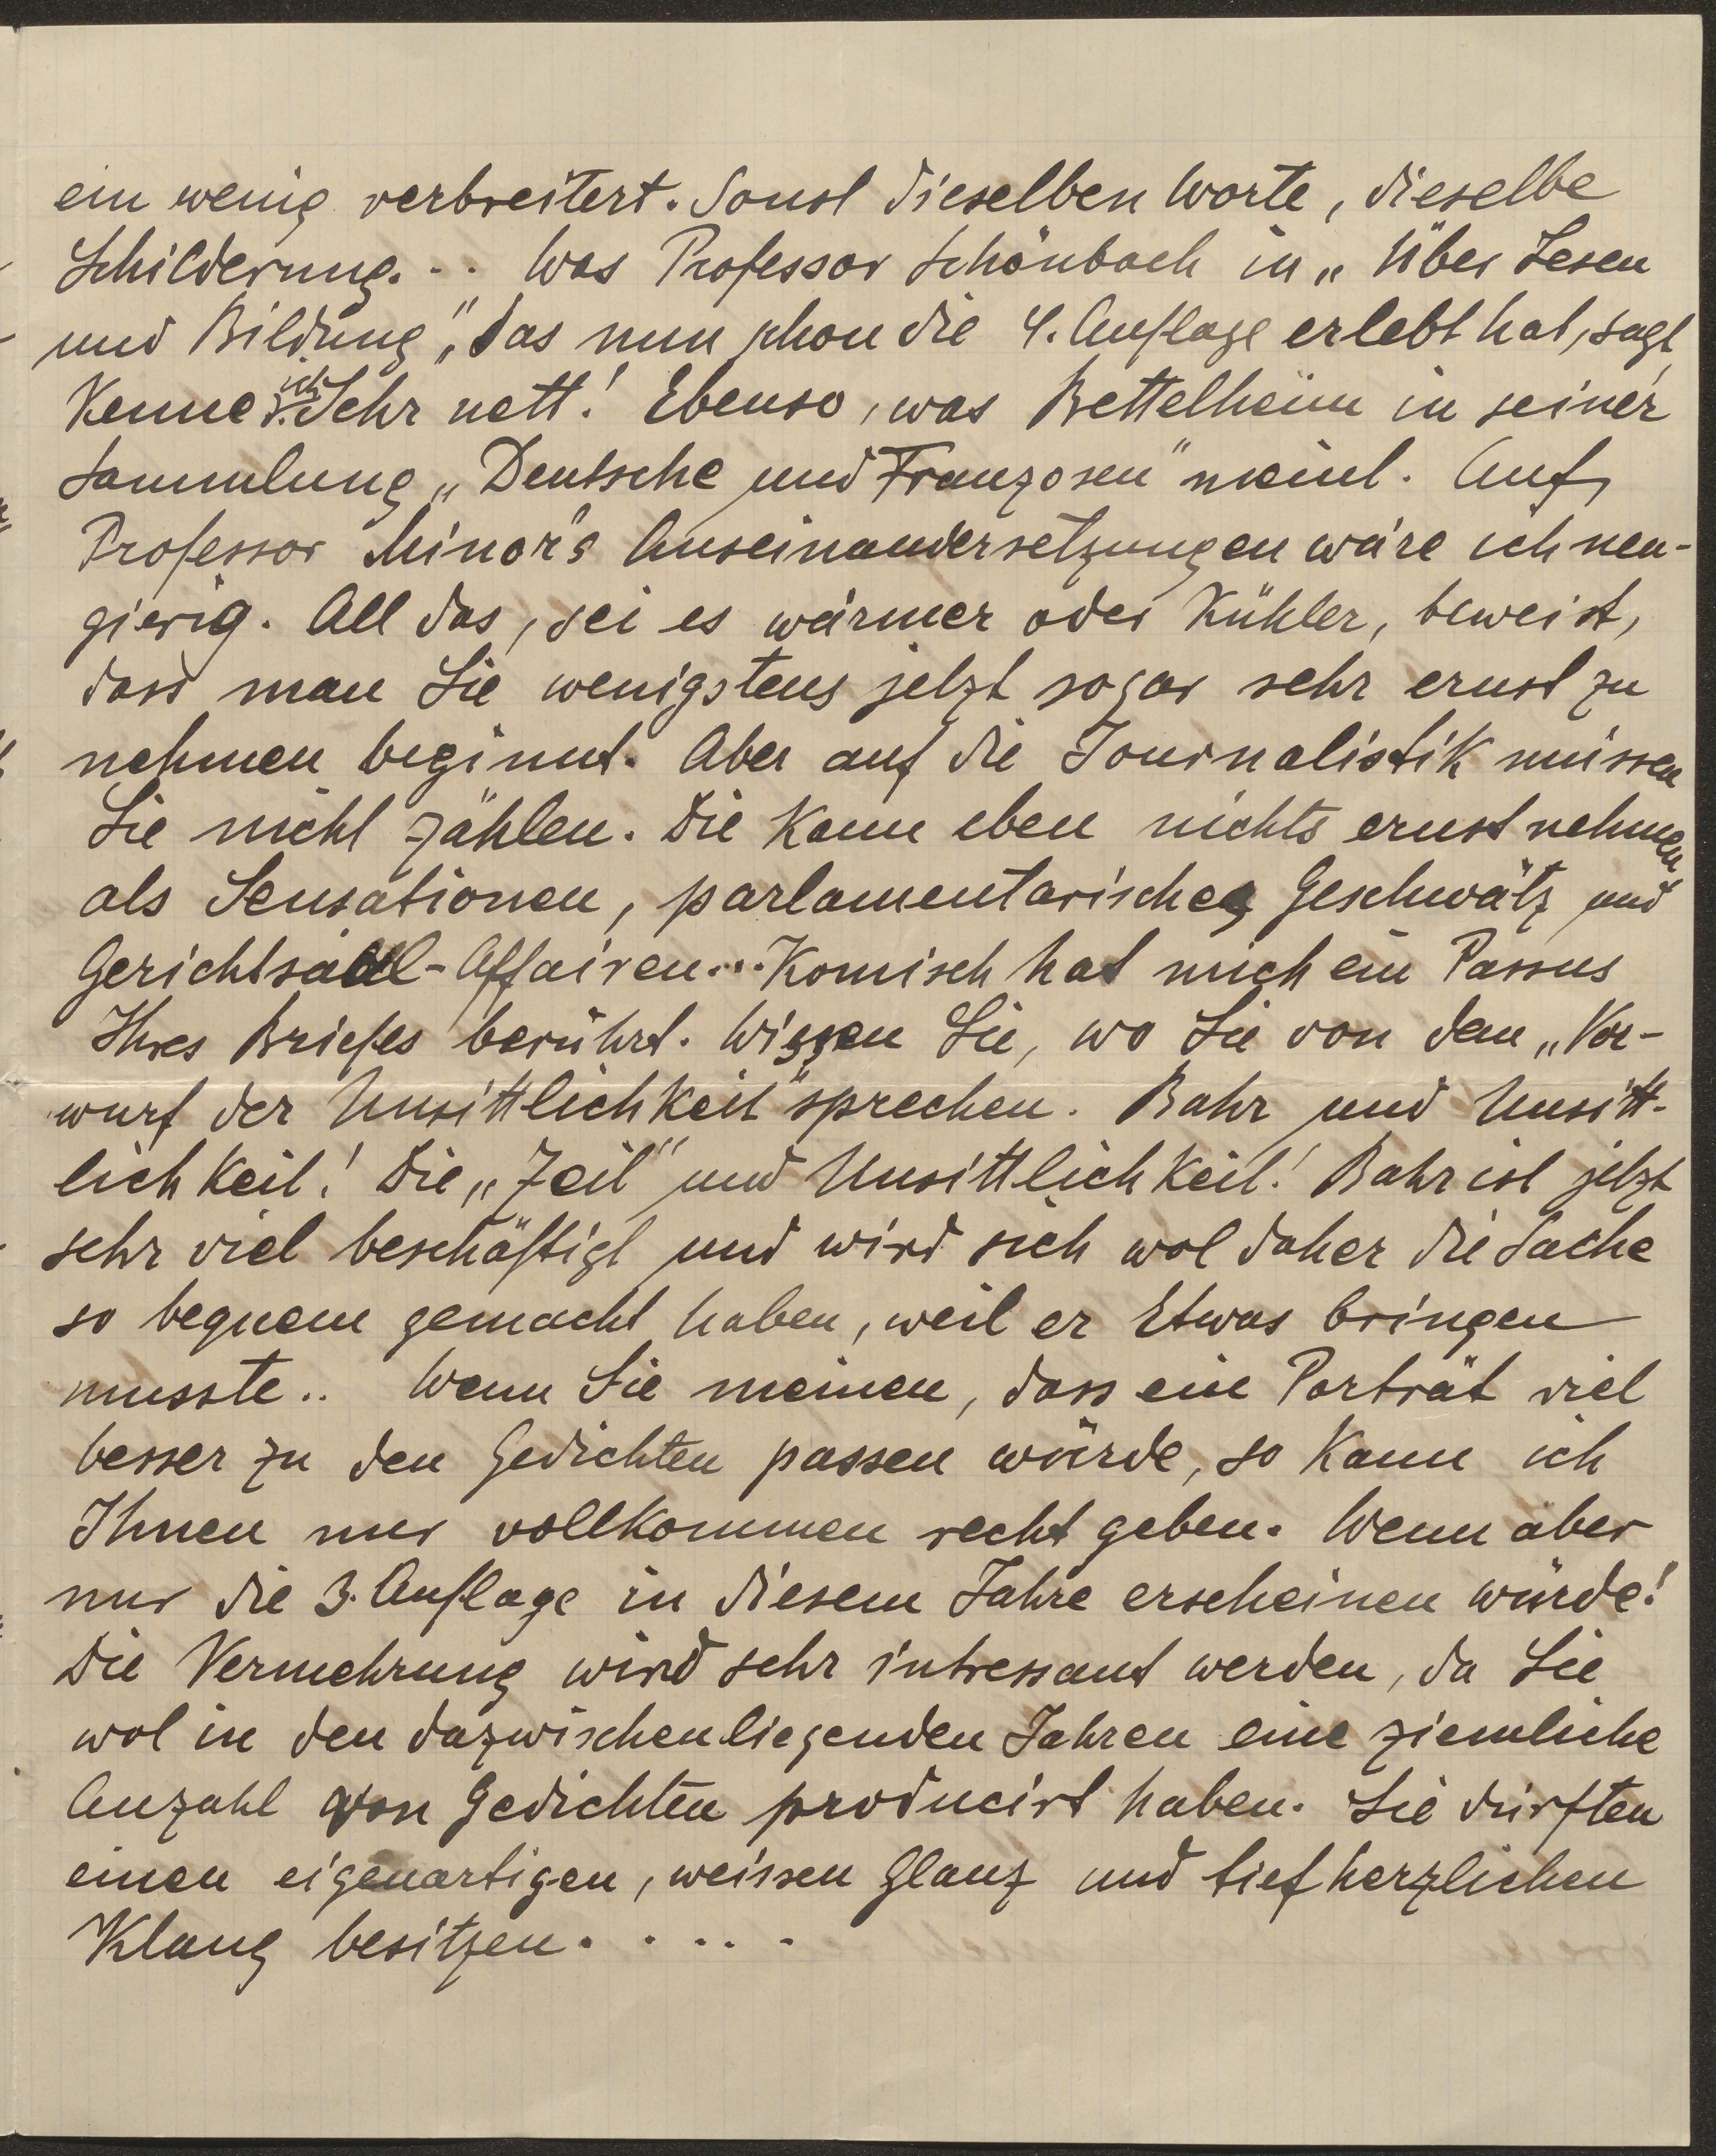 ein wenig verbreitert. Sonst dieselben Worte, dieselbe
Schilderung... Was Professor Schönbach in „Über Lesen
und Bildung“, das nun schon die 4. Auflage erlebt hat, sagt,
kenne ich. Sehr nett! Ebenso, was Bettelheim in seiner
Sammlung „Deutsche und Franzosen“ meint. Auf
Professor Minor's Auseinandersetzungen wäre ich neu-
gierig. All das, sei es wärmer oder kühler, beweist,
dass man Sie wenigstens jetzt sogar sehr ernst zu
nehmen beginnt. Aber auf die Journalistik müssen
Sie nicht zählen. Die kann eben nichts ernst nehmen,
als Sensationen, parlamentarisches Geschwätz und
Gerichtsaal-Affairen... Komisch hat mich ein Passus
Ihres Briefes berührt. Wissen Sie, wo Sie von dem „Vor-
wurf der Unsittlichkeit“ sprechen. Bahr und Unsitt-
lichkeit! Die „Zeit“ und Unsittlichkeit! Bahr ist jetzt
sehr viel beschäftigt und wird sich wol daher die Sache
so bequem gemacht haben, weil er Etwas bringen
musste.. Wenn Sie meinen, dass ein Porträt viel
besser zu den Gedichten passen würde, so kann ich
Ihnen nur vollkommen recht geben. Wenn aber
nur die 3. Auflage in diesem Jahre erscheinen würde!
Die Vermehrung wird sehr intressant werden, da Sie
wol in den dazwischenliegenden Jahren eine ziemliche
Anzahl von Gedichten producirt haben. Sie dürften
einen eigenartigen, weissen Glanz und tiefherzlichen
Klang besitzen.....